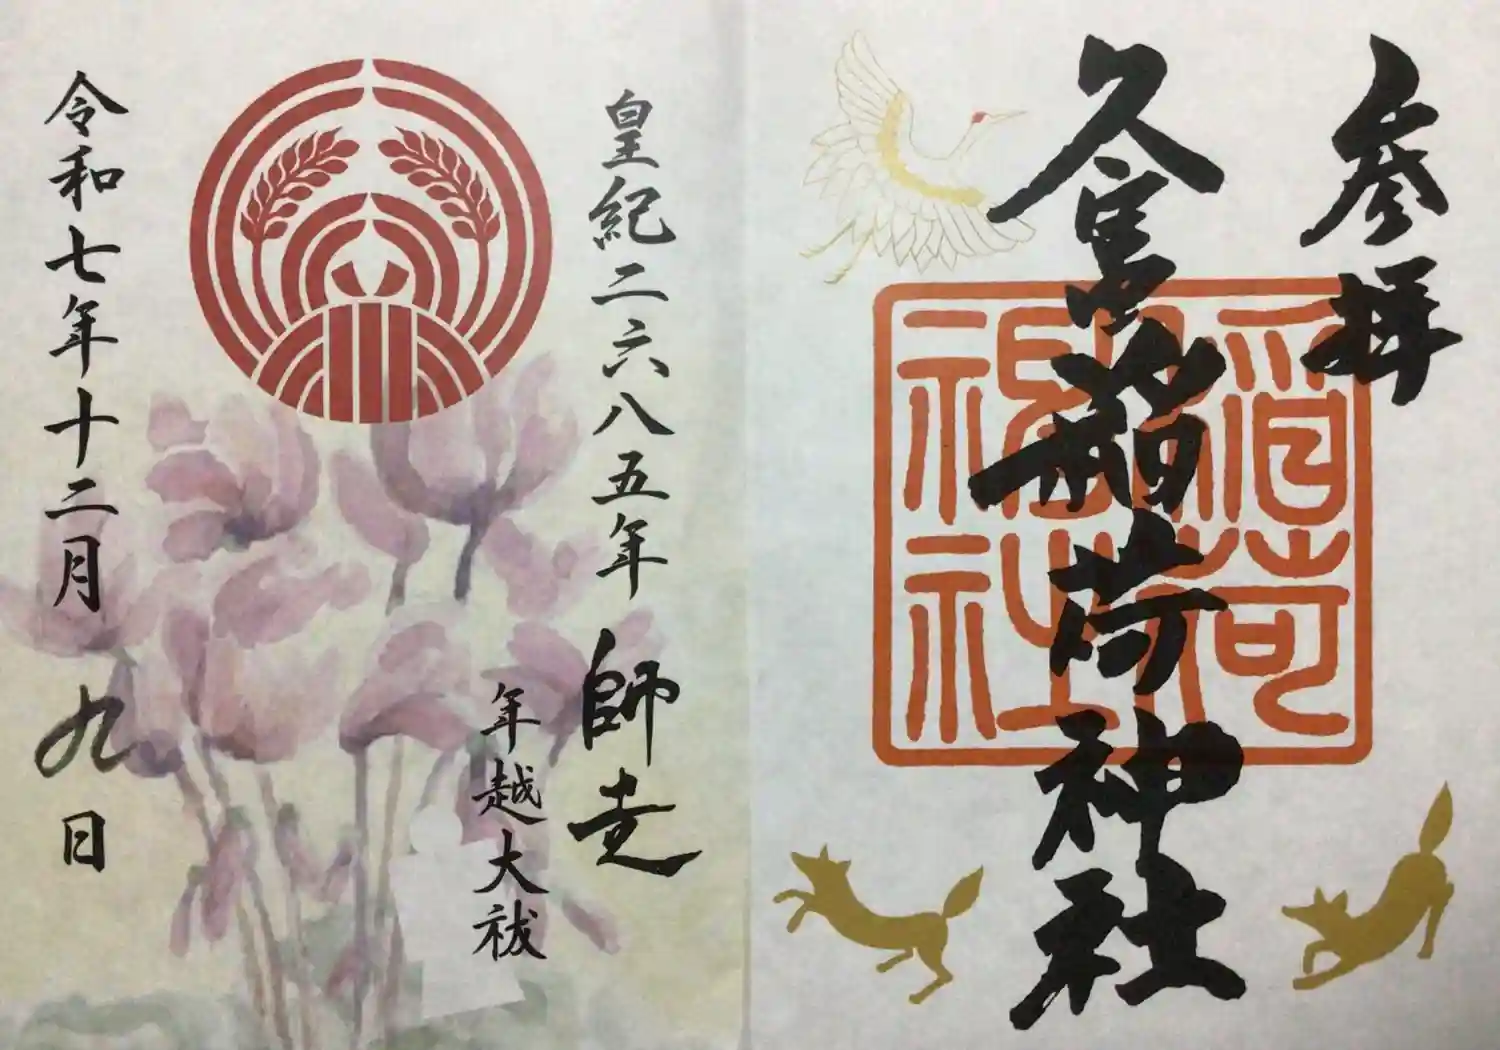 参拝
久富稲荷神社
稲荷
神社
皇紀二六八五年 師走
年越大祓
令和七年十二月九日